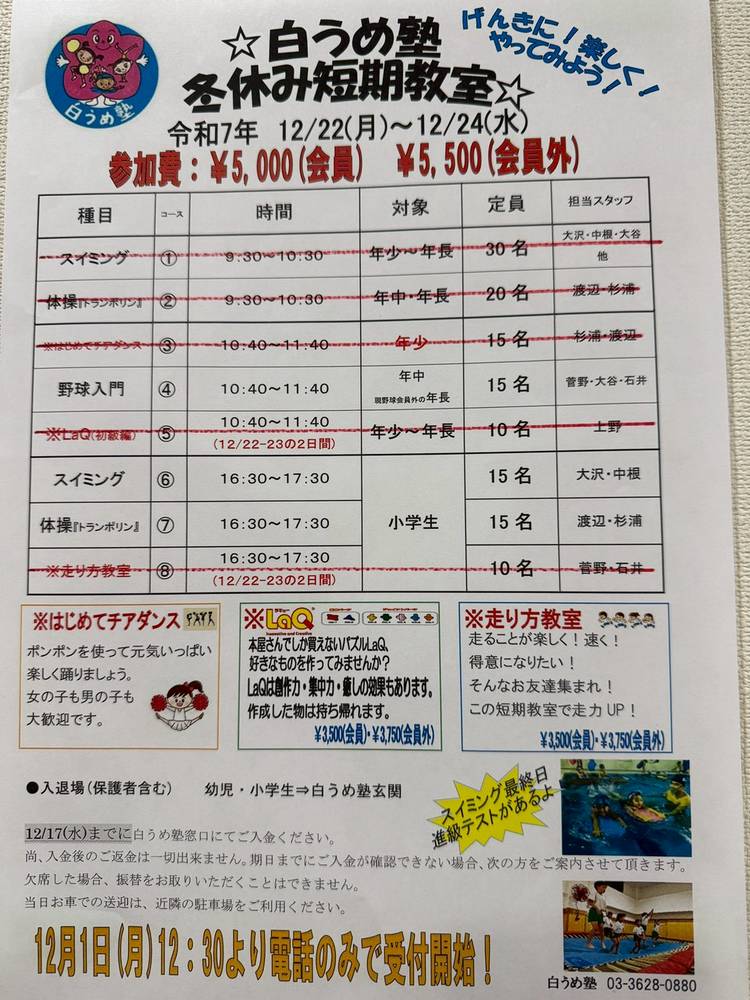 白うめ塾
げんきに！楽しく！
やってみよう！
☆白うめ塾
冬休み短期教室☆
令和7年 12/22(月)～12/24(水)
参加費：￥5,000(会員) ￥5,500(会員外)
種目 コース 時間 対象 定員 担当スタッフ
スイミング ① 9:30～10:30 年少～年長 30名 大沢・中根・大谷 他
体操『トランポリン』 ② 9:30～10:30 年中・年長 20名 渡辺・杉浦
※はじめてチアダンス ③ 10:40～11:40 年少 15名 杉浦・渡辺
野球入門 ④ 10:40～11:40 年中 現野球会員外の年長 15名 菅野・大谷・石井
※LaQ(初級編) ⑤ 10:40～11:40 (12/22-23の2日間) 年少～年長 10名 上野
スイミング ⑥ 16:30～17:30 小学生 15名 大沢・中根
体操『トランポリン』 ⑦ 16:30～17:30 15名 渡辺・杉浦
※走り方教室 ⑧ 16:30～17:30 (12/22-23の2日間) 10名 菅野・石井
※はじめてチアダンス
ポンポンを使って元気いっぱい
楽しく踊りましょう。
女の子も男の子も
大歓迎です。
※LaQ
Innovative and Creative
本屋さんでしか買えないパズルLaQ、
好きなものを作ってみませんか？
LaQは創作力・集中力・癒しの効果もあります。
作成した物は持ち帰れます。
￥3,500(会員)・￥3,750(会員外)
※走り方教室
走ることが楽しく！速く！
得意になりたい！
そんなお友達集まれ！
この短期教室で走力UP！
￥3,500(会員)・￥3,750(会員外)
●入退場(保護者含む) 幼児・小学生⇒白うめ塾玄関
スイミング最終日
進級テストがあるよ
12/17(水)までに白うめ塾窓口にてご入金ください。
尚、入金後のご返金は一切出来ません。期日までにご入金が確認できない場合、次の方をご案内させて頂きます。
欠席した場合、振替をお取りいただくことはできません。
当日お車での送迎は、近隣の駐車場をご利用ください。
12月1日(月)12：30より電話のみで受付開始！
白うめ塾 03-3628-0880